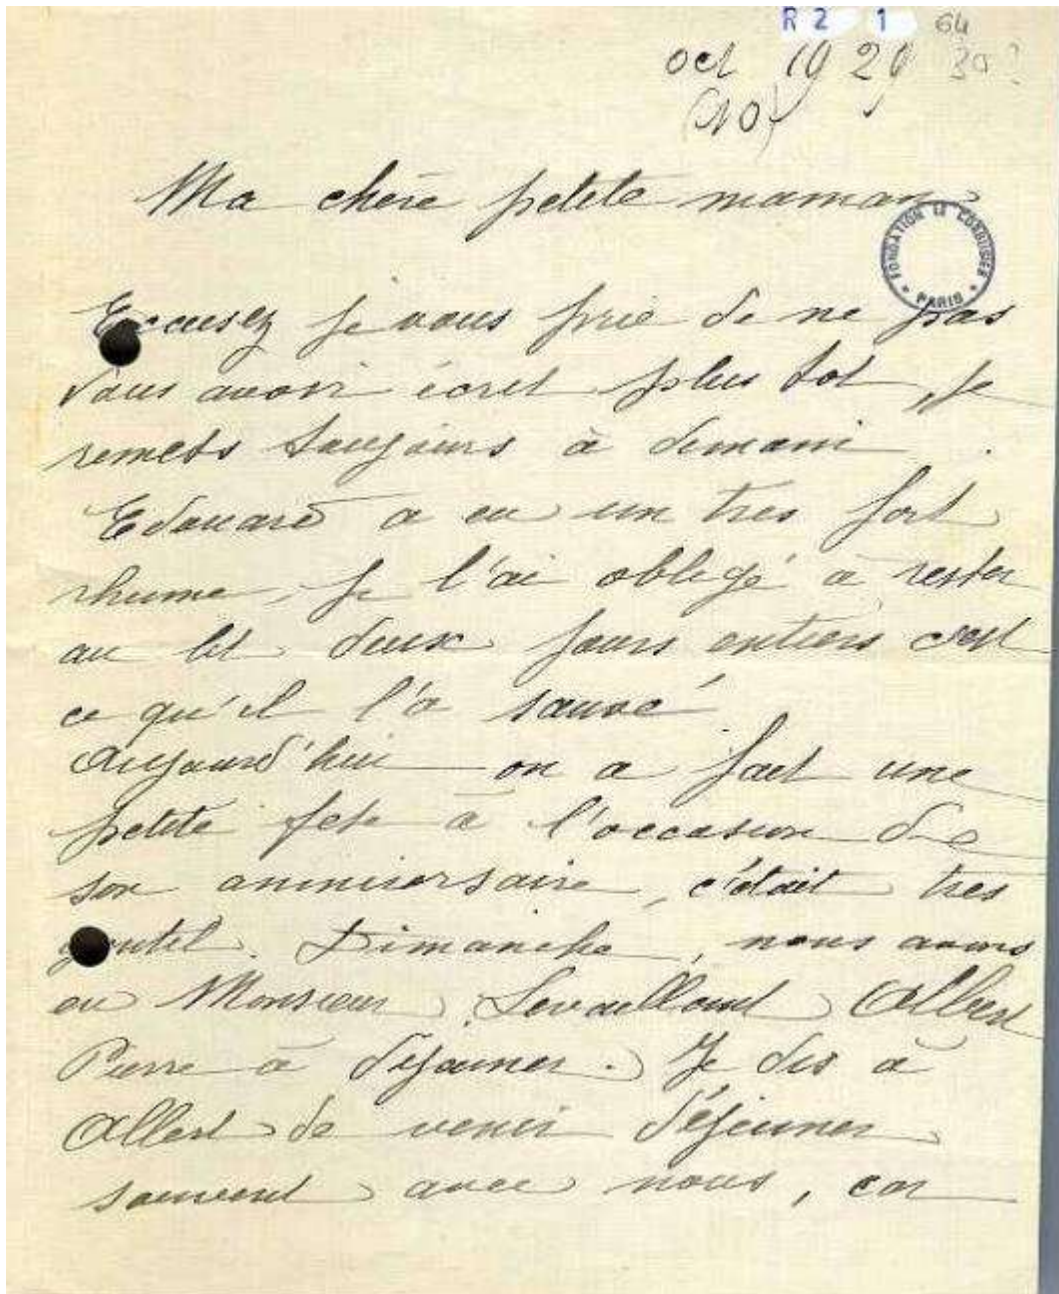 R 2 1 64
oct 1929 30?
(10)
Ma chère petite maman
FONDATION LE CORBUSIER * PARIS *
Excusez je vous prie de ne pas
vous avoir écrit plus tot, je
remets toujours à demain.
Edouard a eu un tres fort
rhume, je l'ai obligé a rester
au lit deux jours entiers c'est
ce qu'il l'a sauvé
Aujourd'hui on a fait une
petite fete à l'occasion de
son anniversaire, c'était tres
gentil. Dimanche, nous avons
eu Monsieur Levaillant Albert
Pierre à déjeuner. Je dis à
Albert de venir déjeuner
souvent avec nous, car